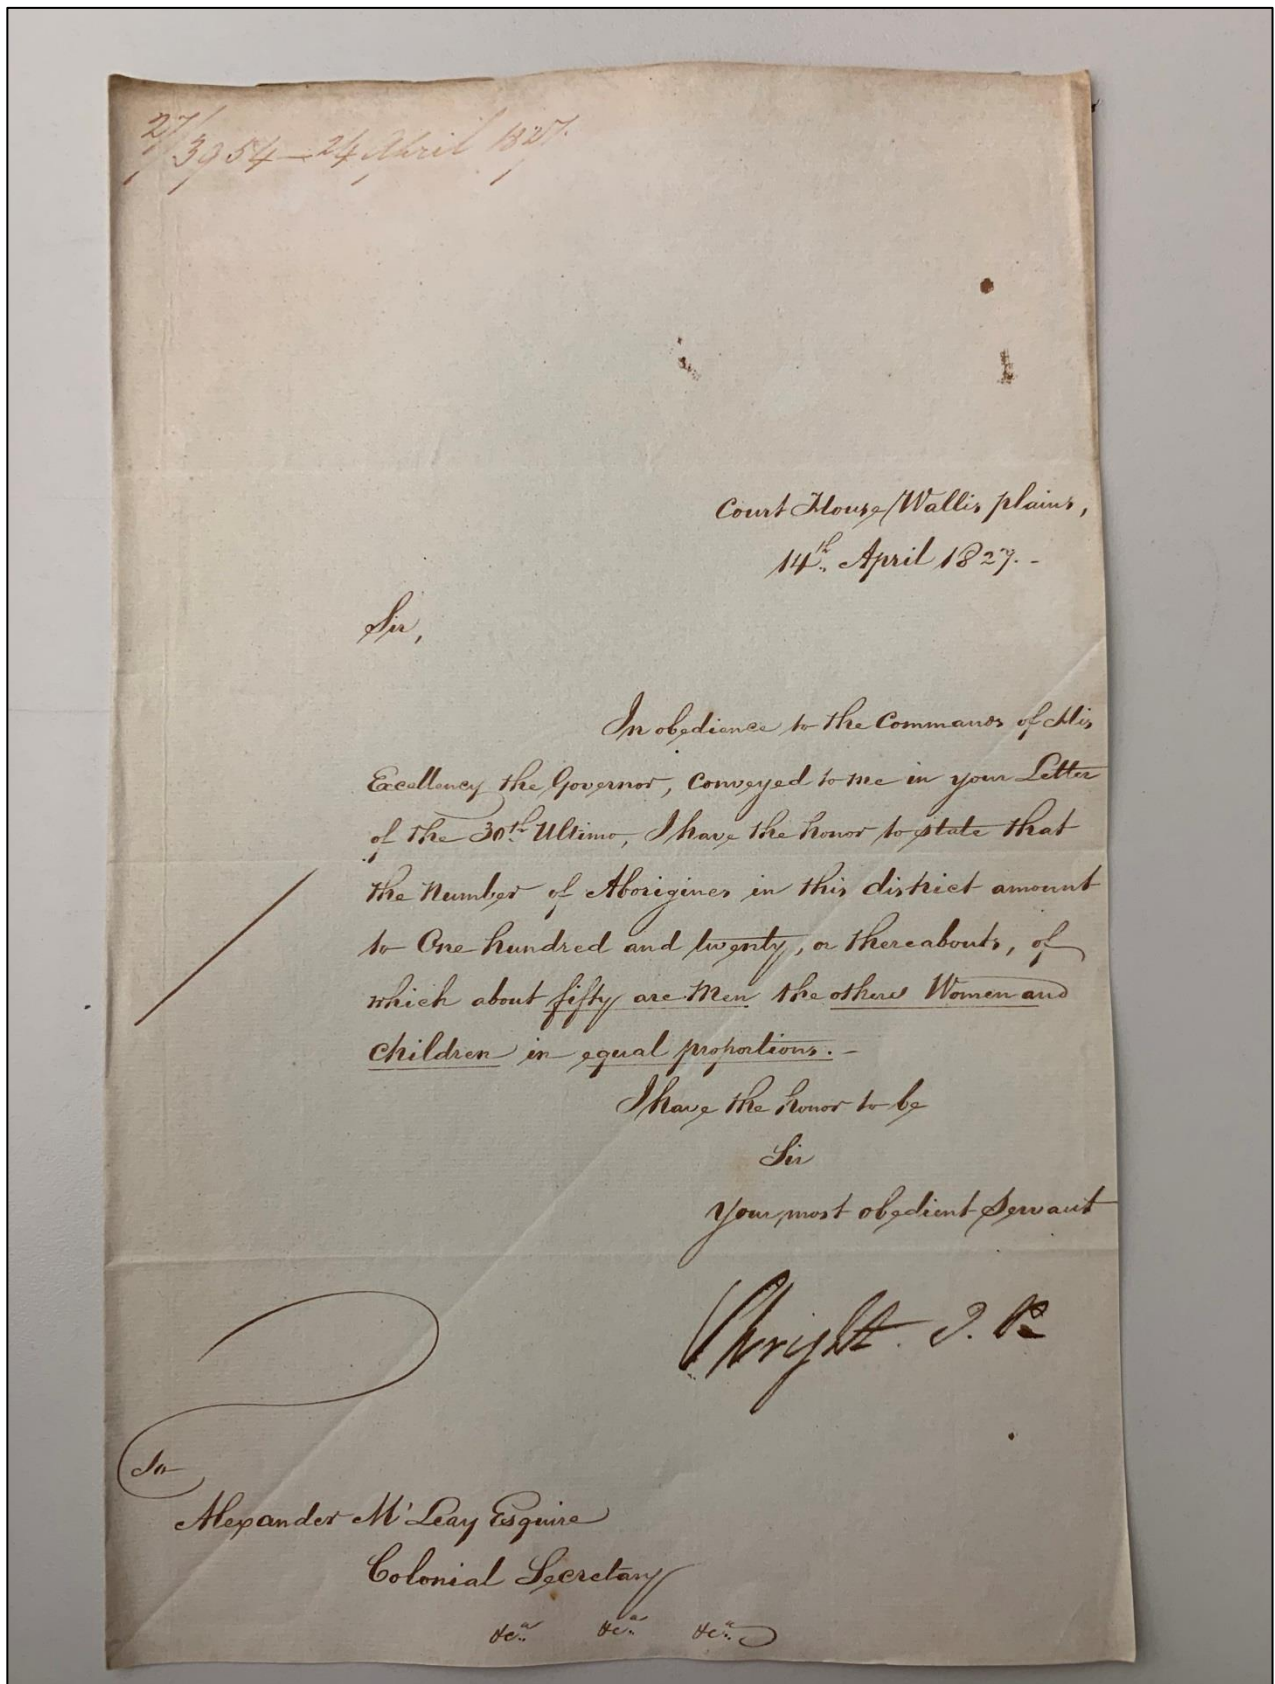 27/3954 — 24 April 1827.
Court House, Wallis plains,
14th April 1827. -
Sir,
In obedience to the Commands of His
Excellency the Governor, conveyed to me in your Letter
of the 30th Ultimo, I have the honor to state that
the Number of Aborigines in this district amount
to One hundred and twenty, or thereabouts, of
which about fifty are Men the others Women and
children in equal proportions. -
I have the honor to be
Sir
your most obedient Servant
Wright J.P.
To
Alexander M'Leay Esquire
Colonial Secretary
&ca &ca &ca